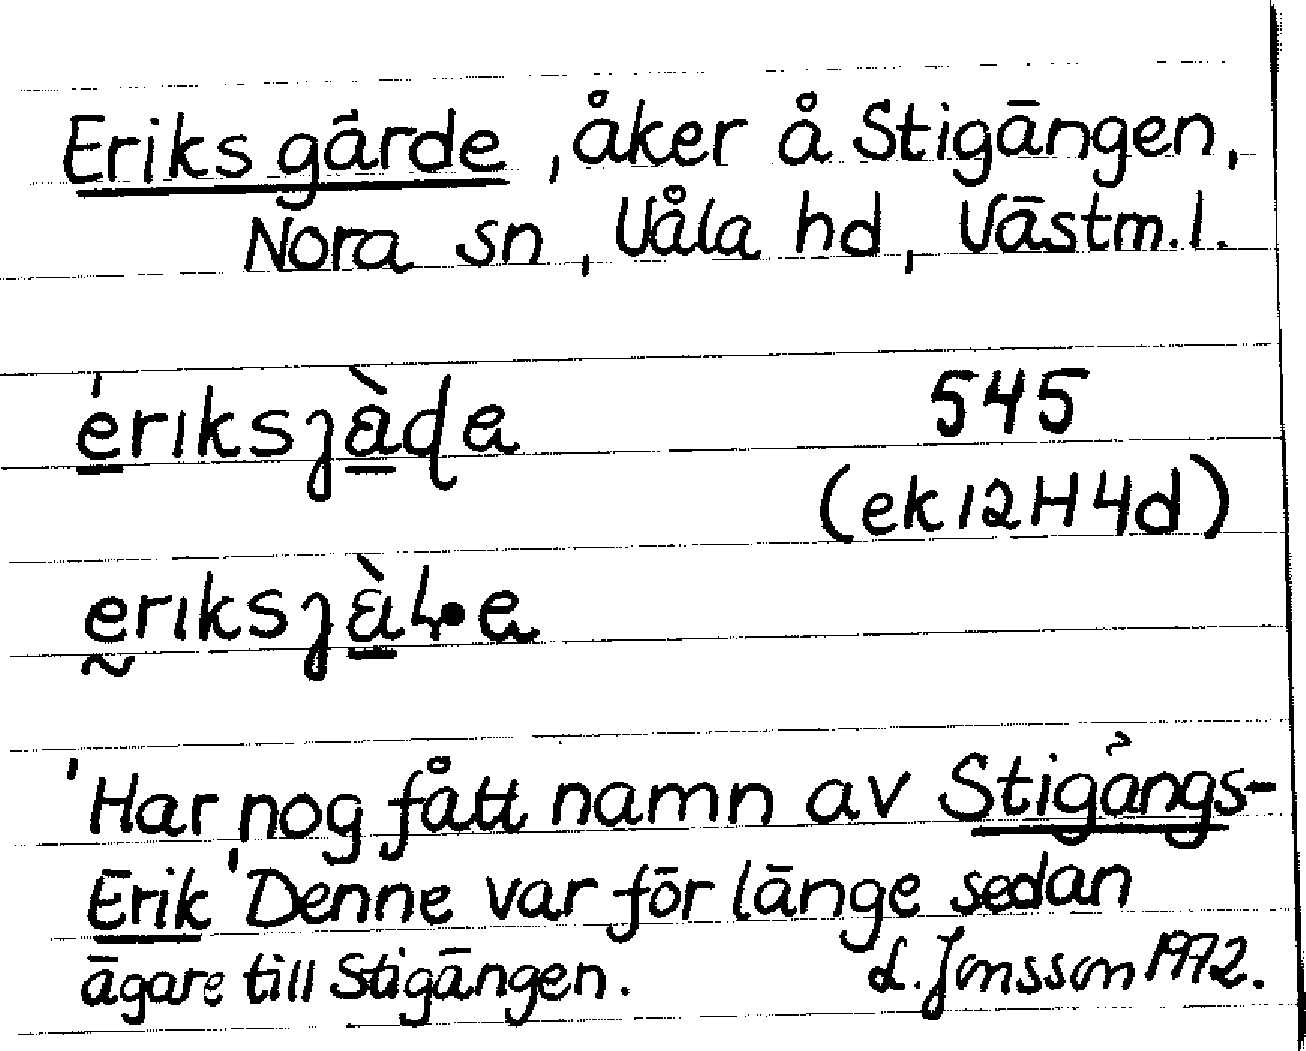 Eriks gärde, åker å Stigängen,
Nora sn, Våla hd, Västm.l.
545
(ek 12H4d)
'Har nog fått namn av Stigångs-
Erik' Denne var för länge sedan
ägare till Stigängen. L. Jonsson 1972.